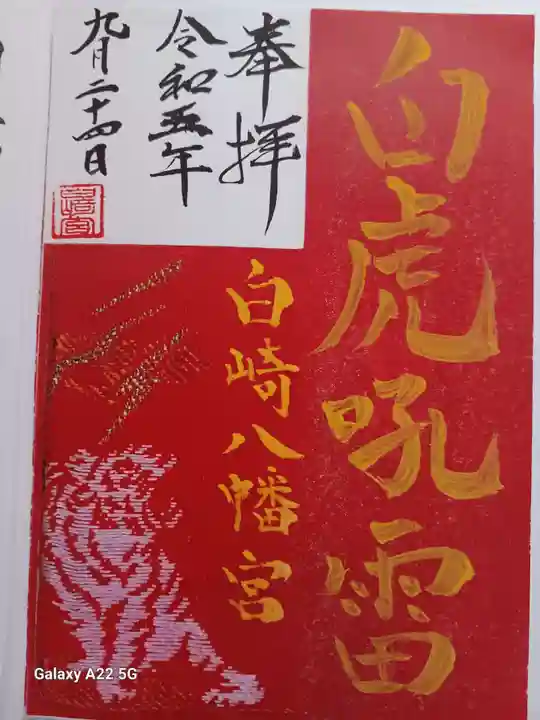 白虎吼雷
奉拝
令和五年
九月二十四日
白崎八幡宮
Galaxy A22 5G